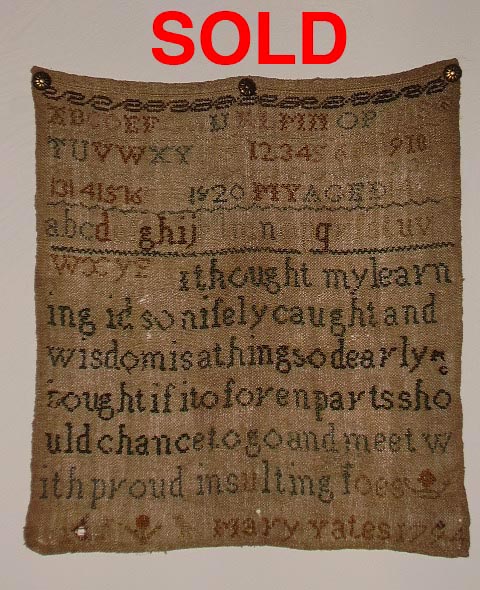 SOLD
ABCDEF OP
TUVWXY 12345 910
13141516 1920 MYAGE
abcd ghij n q uv
wxyz ithought mylearn
ing id so nifely caught and
wisdomisathingsodearly
bought if i to foren parts sho
uld chance to go and meet w
ith proud insulting foes
Mary Yates 1794